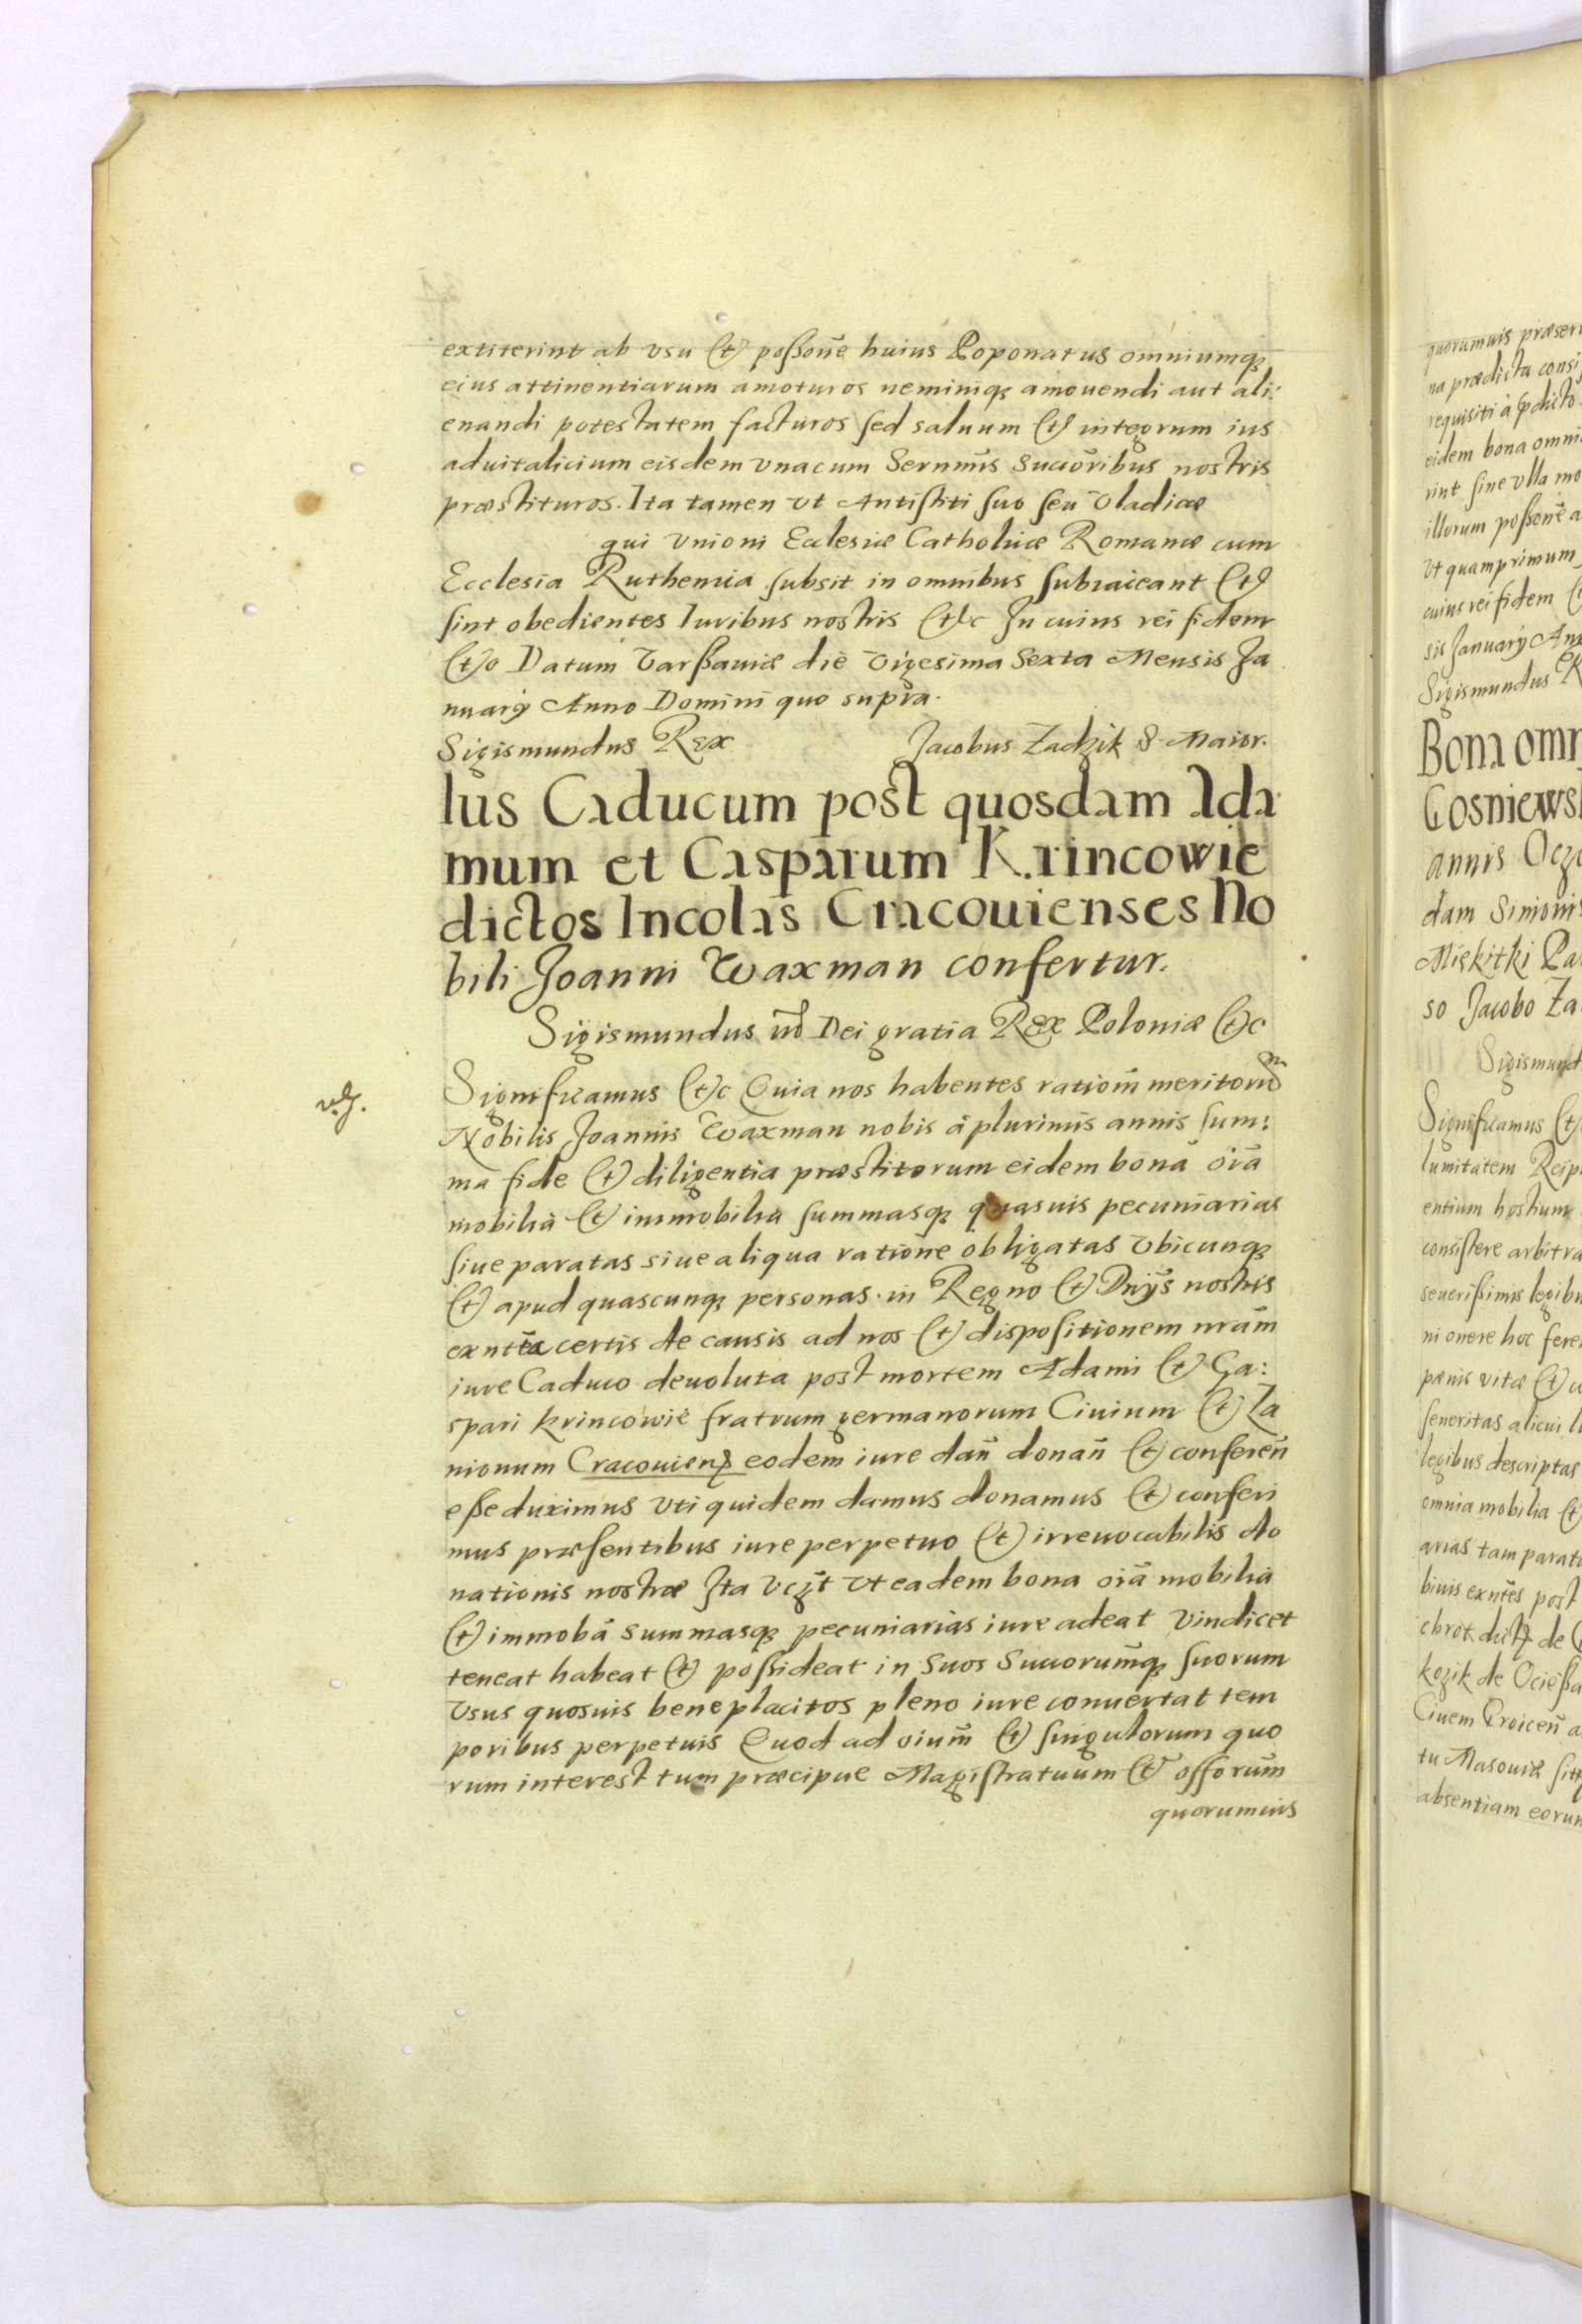 extiterint ab vsu (et) poßoñe huius Poponatus omniumq;
eius attinentiarum amoturos neminiq; amouendi aut ali:
enandi potestatem facturos sed saluum (et) integrum ius
aduitalicium eisdem vnacum Sernm̃is Succõribus nostris
præstituros. Ita tamen vt Antistiti suo seu Vladicæ
qui Vnioni Ecclesiæ Catholicæ Romanæ cum
Ecclesia Ruthenica subsit in omnibus subiaceant (et)
sint obedientes Iuribus nostris (et)c In cuius rei fidem
(et)c Datum Varßauiæ die Vigesima Sexta Mensis Ja
nuarÿ Anno Domini quo supra.
Sigismundus Rex
Jacobus Zadzik S. Maior.
Ius Caducum post quosdam Ada
mum et Casparum Krincowie
dictos Incolas Cracouienses No
bili Joanni Waxman confertur.
Sigismundus iiiꝰ Dei gratia Rex Poloniæ (et)c
Significamus (et)c Quia nos habentes ratiom̃ meritorũ
Nobilis Joannis Waxman nobis à plurimis annis sum:
ma fide (et) diligentia præstitorum eidem bona oĩa
mobilia (et) immobilia summasq; quasuis pecuniarias
siue paratas siue aliqua ratione obligatas Vbicunq;
(et) apud quascunq; personas in Regno (et) Dnÿs nostris
exnt̃ia certis de causis ad nos (et) dispositionem nrãm
iure Caduco deuoluta post mortem Adami (et) Ga:
spari Krincowie fratrum germanorum Ciuium (et) La
nionum Cracouien̄ eodem iure dañ donañ (et) conferen̄
eße duximus vti quidem damus donamus (et) conferi
mus præsentibus iure perpetuo (et) irreuocabilis do
nationis nostræ Ita vczt̃ vt eadem bona oĩa mobilia
(et) immobã summasq; pecuniarias iure adeat vindicet
teneat habeat (et) possideat in suos Succorumq̃; suorum
Vsus quosuis beneplacitos pleno iure conuertat tem
poribus perpetuis Quod ad oium̃ (et) singulorum quo
rum interest tum præcipue Magistratuum (et) offorum̃
quorumuis
quorumuis præser
na prædicta consi
requisiti à pdicto
eidem bona omni
rint sine vlla mo
illorum poßoñe a
Vt quamprimum
cuius rei fidem
sis Januarÿ An
Sigismundus R
Bona omn
Gosniews
annis Ocz
dam Simonis
Mikitki Pa
so Jacobo Za
Sigismund
Significamus (et)
lumitatem Reip
entium hostium
consistere arbitra
seuerißimis legibu
ni onere hoc fere
pænis vitæ (et)
seueritas alicui
legibus descriptas
omnia mobilia (et)
arias tam parat
biuis exntẽs post
kozik de Ocießa
tu Masouiæ
absentiam eorum